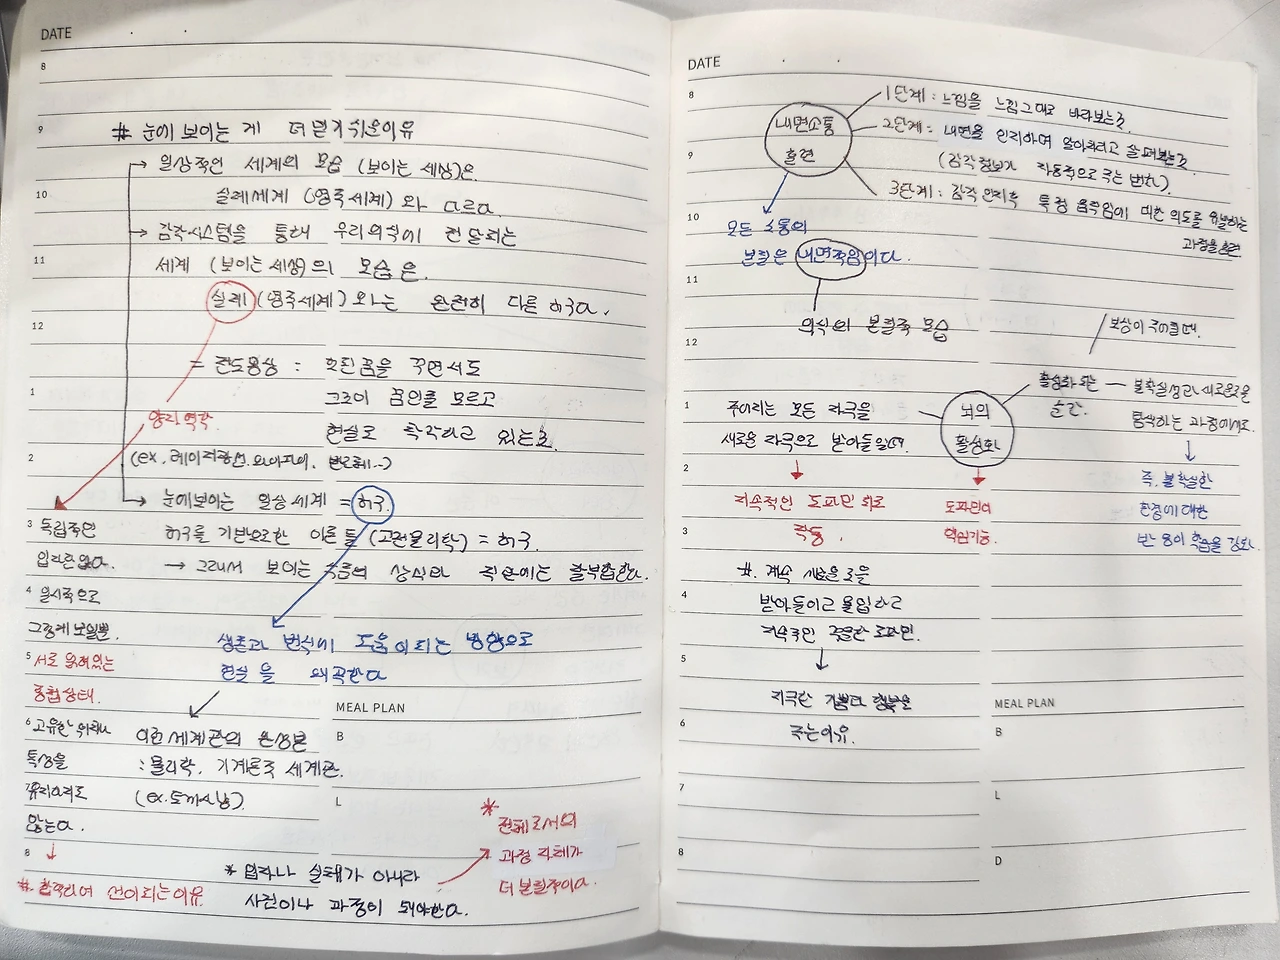 DATE
8
9
# 눈에 보이는 게 더 믿기 쉬운이유
→ 일상적인 세계의 모습 (보이는 세상)은.
10
실레세계 (영죽세계) 와 다르다.
→ 감각시스템을 통해 우리의식이 전달되는
11
세계 (보이는 세상)의 모습은.
실레 (영죽세계) 와는 완전히 다른 허구다.
12
= 전도몽상 : 헛된꿈을 꾸면서도
1
그것이 꿈인줄 모르고
양자역학
현실로 착각하고 있는것
2
(ex. 레이저광선. 와이파이.
→ 눈에보이는 일상 세계 = 허구.
3
독립적인
허구를 기반으로한 이론 들 (고전물리학) = 허구.
입자란없다.
→ 그래서 보이는 것들의 상식과 직관에는 부합한다.
4
일시적으로
그렇게 보일뿐.
생존과 번식에 도움이되는 방향으로
5
서로 얽혀있는
현실을 왜곡한다
중첩상태.
MEAL PLAN
6
고유한 위치나
이런세계관의 완성본
B
특성을
: 물리학. 기계론적 세계관.
7
유지하지도
(ex.
L
않는다.
*
전체로서의
8
과정 자체가
* 입자나 실체가 아니라
더 본질적이다.
# 관측하여 선이되는이유
사건이나 과정이 돼야한다.
DATE
8
내면소통
훈련
1단계 : 느낌을 느낌그대로 바라보는것.
2단계 : 내면을 인지하며 알아차리고 살펴보는것
9
(감각정보가 자동적으로 주는 변화).
3단계 : 감각 인지후 특정 움직임에 대한 의도를 유발하는
과정을훈련
10
모든 소통의
본질은 내면작임이다.
11
의식의 본질적 모습
12
보상이 주어질때.
1
주어지는 모든 자극을
뇌의
활성화
활성화 되는
순간.
불확실성과 새로운것을
탐색하는 과정에서도.
새로운 자극으로 받아들일때
2
지속적인 도파민 회로
도파민이
즉, 불확실한
3
작동.
핵심기능
환경에대한
반응이 학습을 강화.
#. 계속 새로운 것을
4
받아들이고 몰입하고
지속적인 적절한 도파민.
5
지극한 기쁨과 행복을
MEAL PLAN
6
주는이유.
B
7
L
8
D